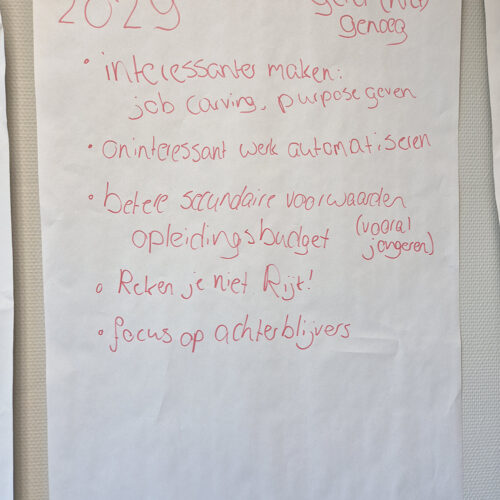 2029
geld (niet)
genoeg
• interessanter maken:
job carving, purpose geven
• oninteressant werk automatiseren
• betere secundaire voorwaarden
opleidingsbudget (vooral
jongeren)
• Reken je niet Rijk!
• focus op achterblijvers